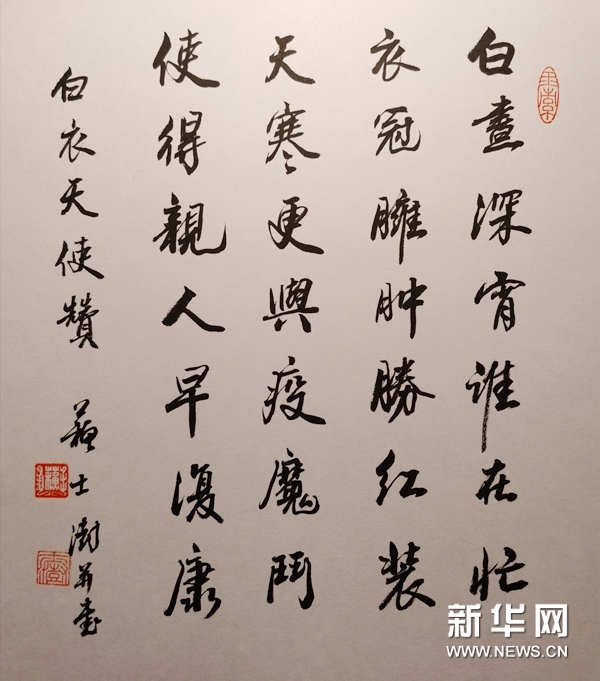 白晝深宵谁在忙
衣冠臃肿勝红裝
天寒更與疫魔鬥
使得親人早復康
白衣天使贊 蘇士澍并書
新华网
WWW.NEWS.CN